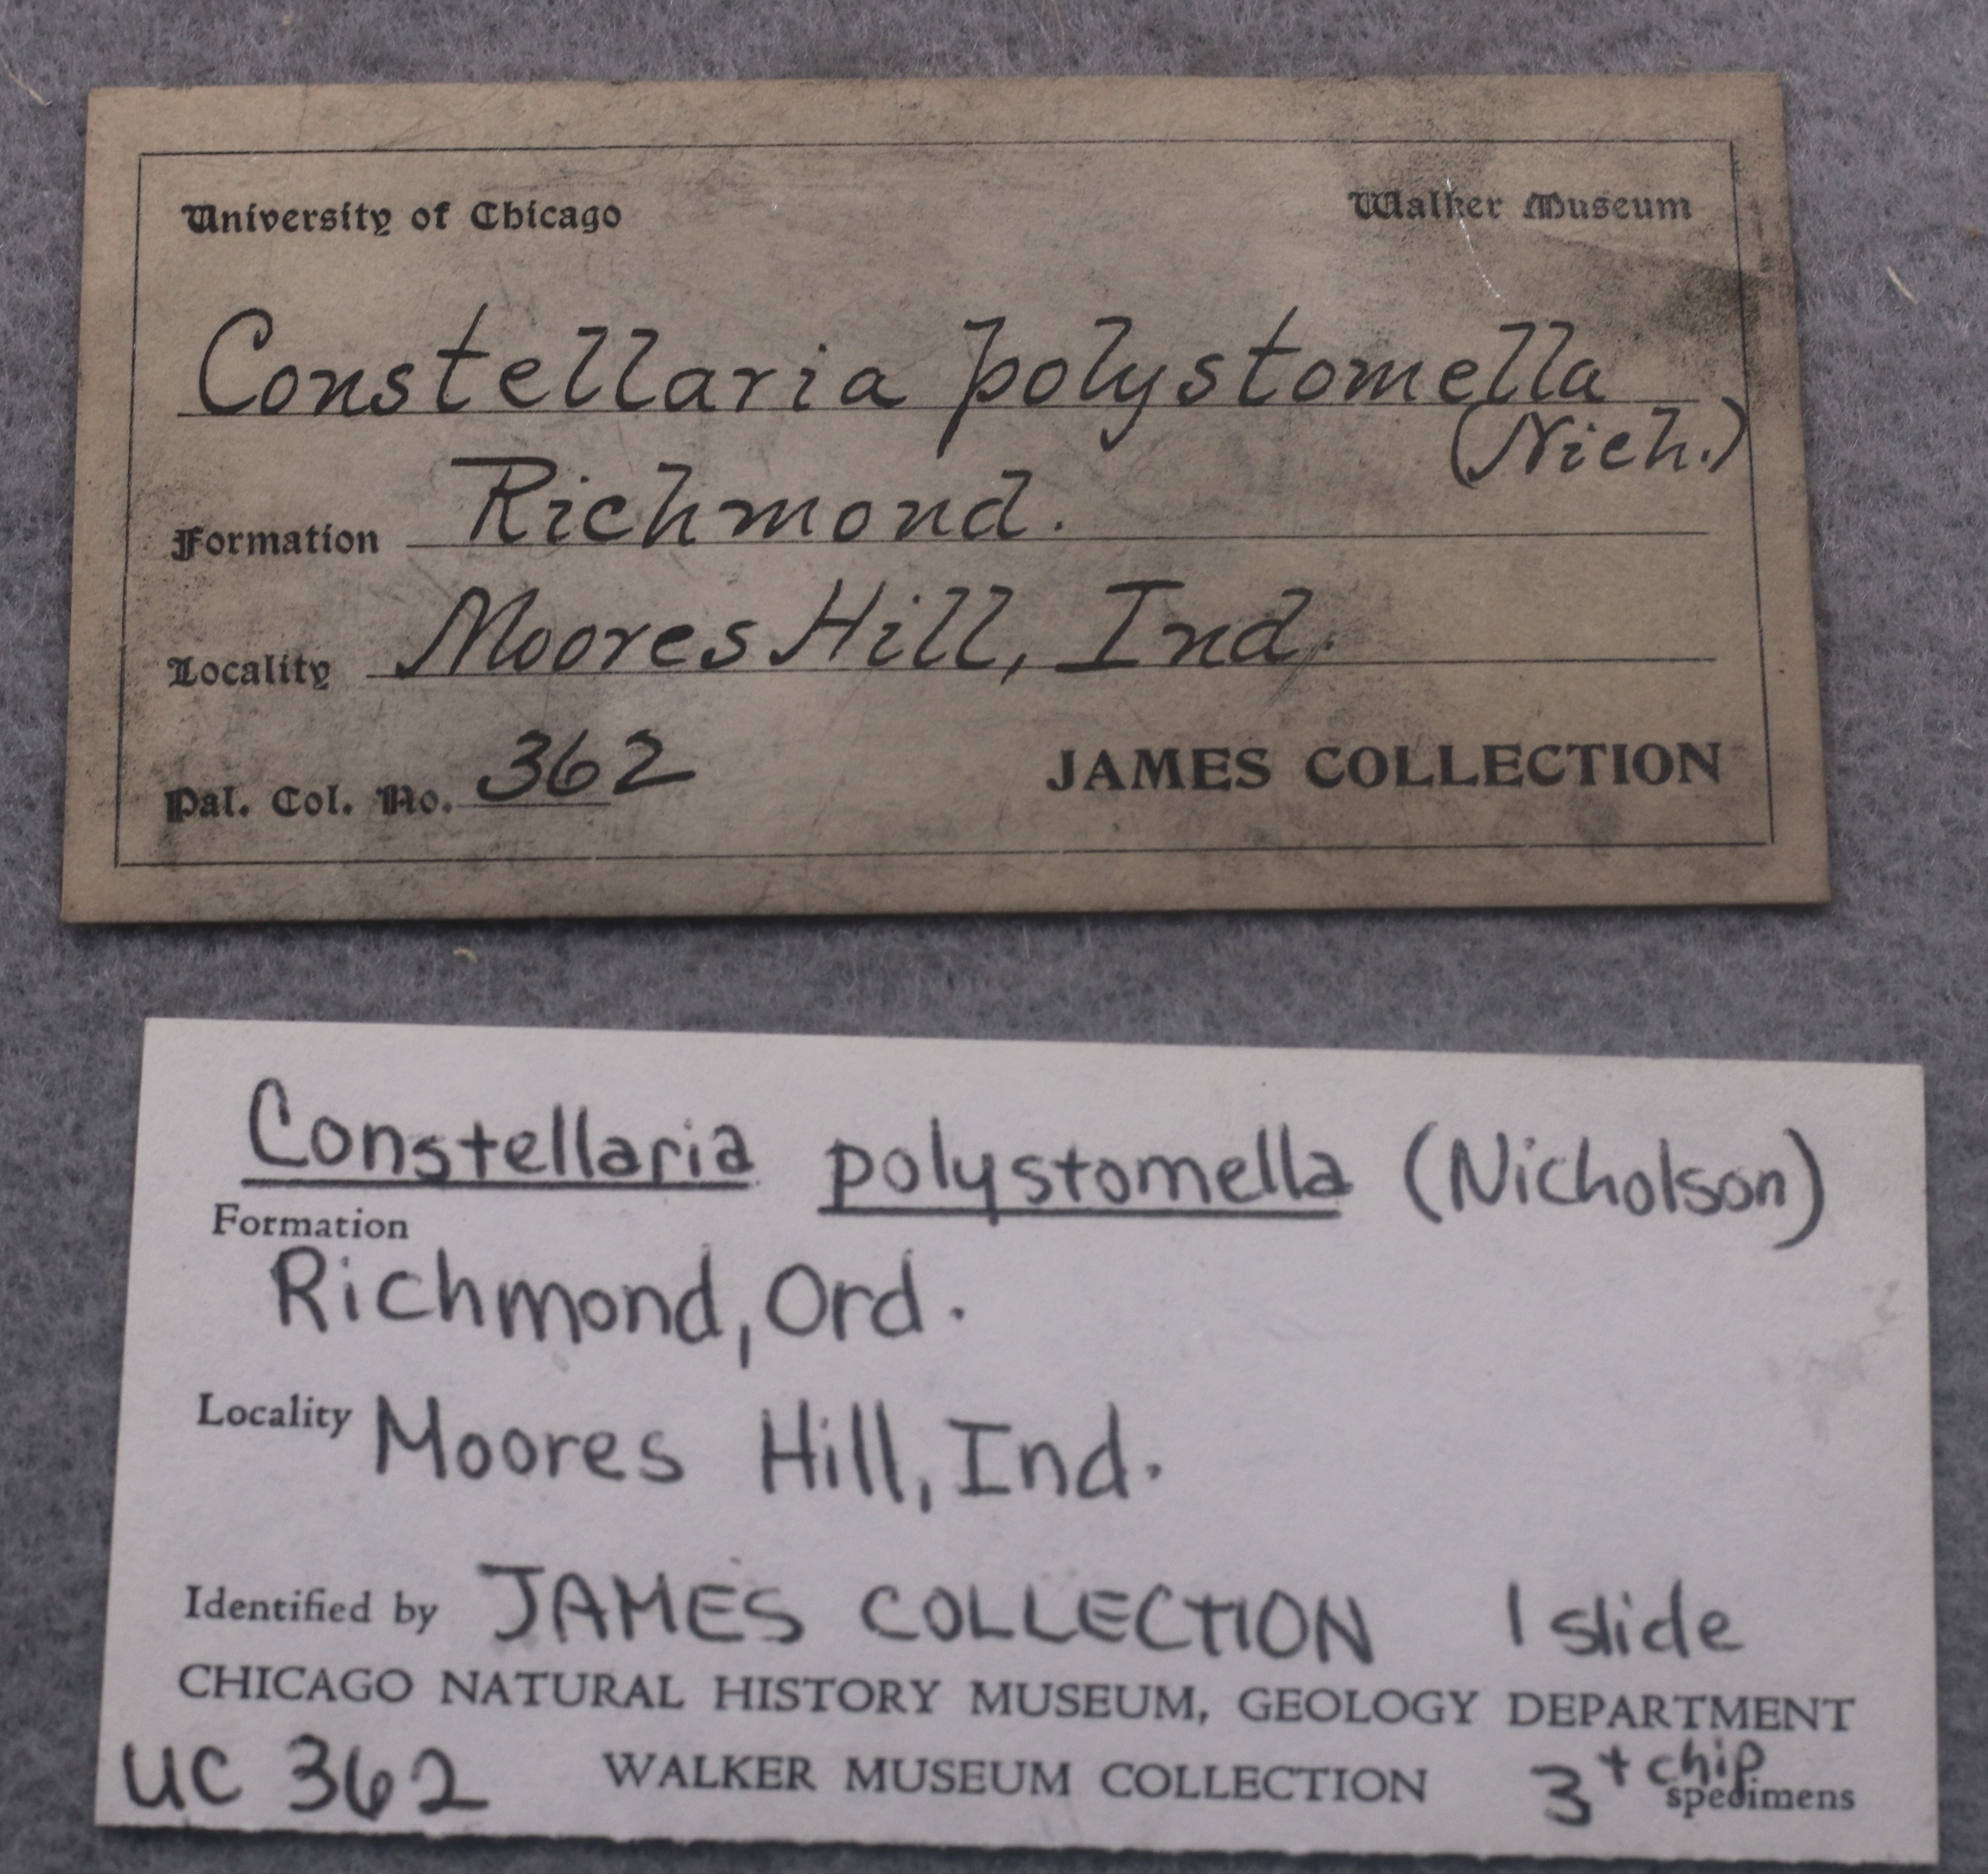 University of Chicago Walker Museum
Constellaria polystomella
(Nich.)
Formation Richmond.
Locality Moores Hill, Ind.
Pal. Col. No. 362 JAMES COLLECTION
Constellaria polystomella (Nicholson)
Formation
Richmond, Ord.
Locality Moores Hill, Ind.
Identified by JAMES COLLECTION 1 slide
CHICAGO NATURAL HISTORY MUSEUM, GEOLOGY DEPARTMENT
UC 362 WALKER MUSEUM COLLECTION 3 + chip specimens